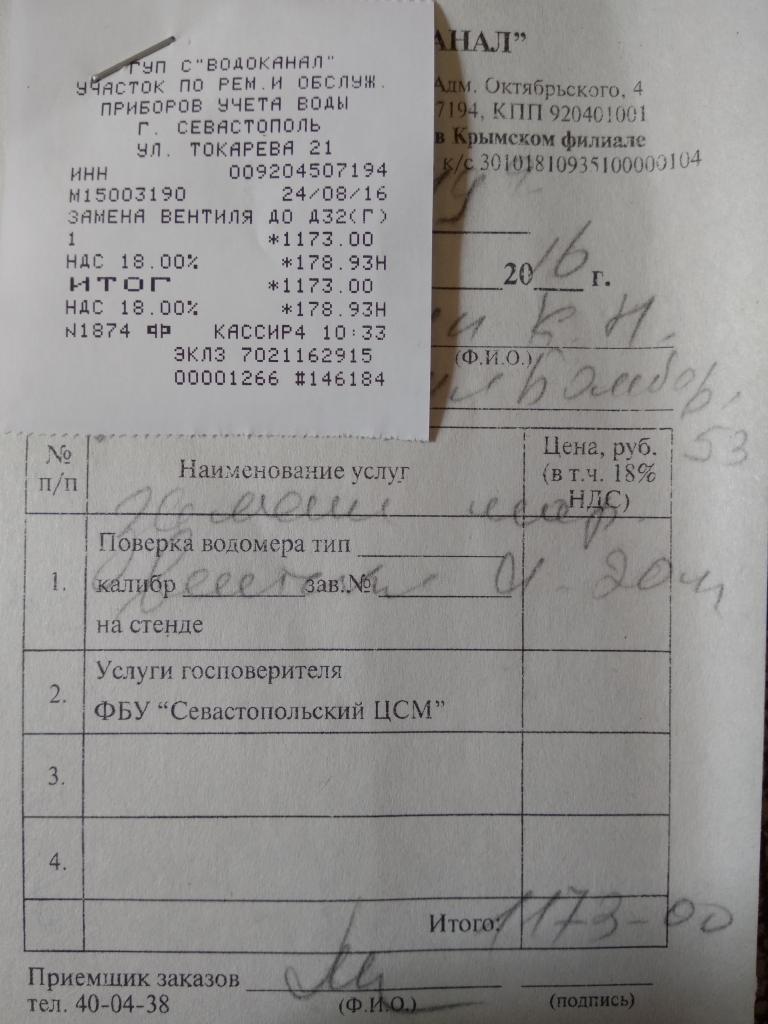 ГУП С"ВОДОКАНАЛ"
УЧАСТОК ПО РЕМ.И ОБСЛУЖ.
ПРИБОРОВ УЧЕТА ВОДЫ
Г. СЕВАСТОПОЛЬ
УЛ. ТОКАРЕВА 21
ИНН 009204507194
М15003190 24/08/16
ЗАМЕНА ВЕНТИЛЯ ДО Д32(Г)
1 *1173.00
НДС 18.00% *178.93Н
ИТОГ *1173.00
НДС 18.00% *178.93Н
N1874 ФР КАССИР4 10:33
ЭКЛЗ 7021162915
00001266 #146184
АНАЛ”
Адм. Октябрьского, 4
7194, КПП 920401001
в Крымском филиале
к/с 30101810935100000104
19
2016 г.
К. Н.
(Ф.И.О.)
Бомбор,
53
№ п/п Наименование услуг Цена, руб. (в т.ч. 18% НДС)
1. Поверка водомера тип
калибр зав.№
20
на стенде
2. Услуги госповерителя
ФБУ “Севастопольский ЦСМ”
3.
4.
Итого: 1173-00
Приемщик заказов
тел. 40-04-38 (Ф.И.О.) (подпись)